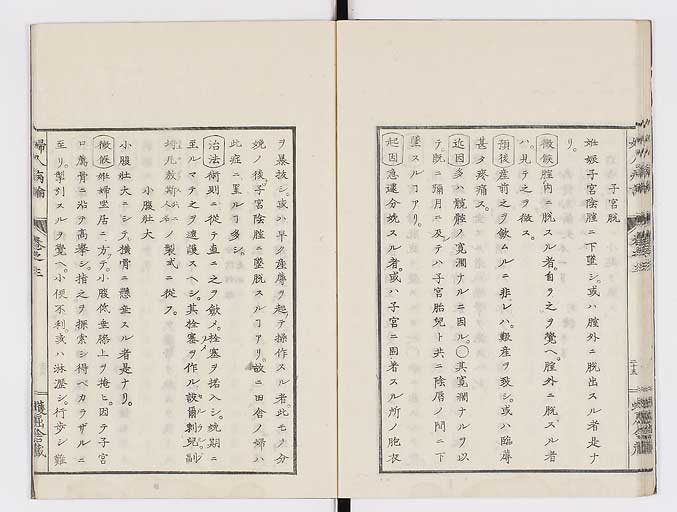 子宮脱
妊娠子宮陰腟ニ下墜シ。或ハ腟外ニ脱出スル者是ナ
リ。
徴候腟内ニ脱スル者。自ラ之ヲ覺ヘ。腟外ニ脱スル者
ハ。見テ之ヲ徴ス。
預後産前之ヲ歛ムルニ非レハ。難産ヲ致シ。或ハ臨蓐
甚タ疼痛ス。
近因多ハ髖腔ノ寛濶ナルニ因ル。〇其寛濶ナルヲ以
テ。既ニ彌月ニ及テハ子宮胎兒ト共ニ陰唇ノ間ニ下
墜スルコアリ。
起因急速分娩スル者。或ハ子宮ニ固着スル所ノ胞衣
ヲ暴抜シ。或ハ早ク産蓐ヲ起テ操作スル者。此モノ分
娩ノ後子宮陰腟ニ墜脱スルコアリ。故ニ田舎ノ婦ハ
此症ニ罹ルコ多シ。
治法術則ニ從テ直ニ之ヲ歛メ。栓塞ヲ搭入シ。娩期ニ
至ルマテ之ヲ遮護スヘシ。其栓塞ヲ作ル設爾剌兒。副
ノ製式ニ從フ。
小腹壮大
小腹壮大ニシテ。横骨ニ懸垂スル者是ナリ。
徴候妊婦坐居ニ方テ。小腹低垂膝上ヲ掩ヒ。因テ子宮
口薦骨ニ沿テ高擧シ。指之ヲ探索シ得ベカラザルニ
至リ。掣引スルヲ覺ヘ。小便不利。或ハ淋瀝シ。行歩シ難
婦人病論
巻之三